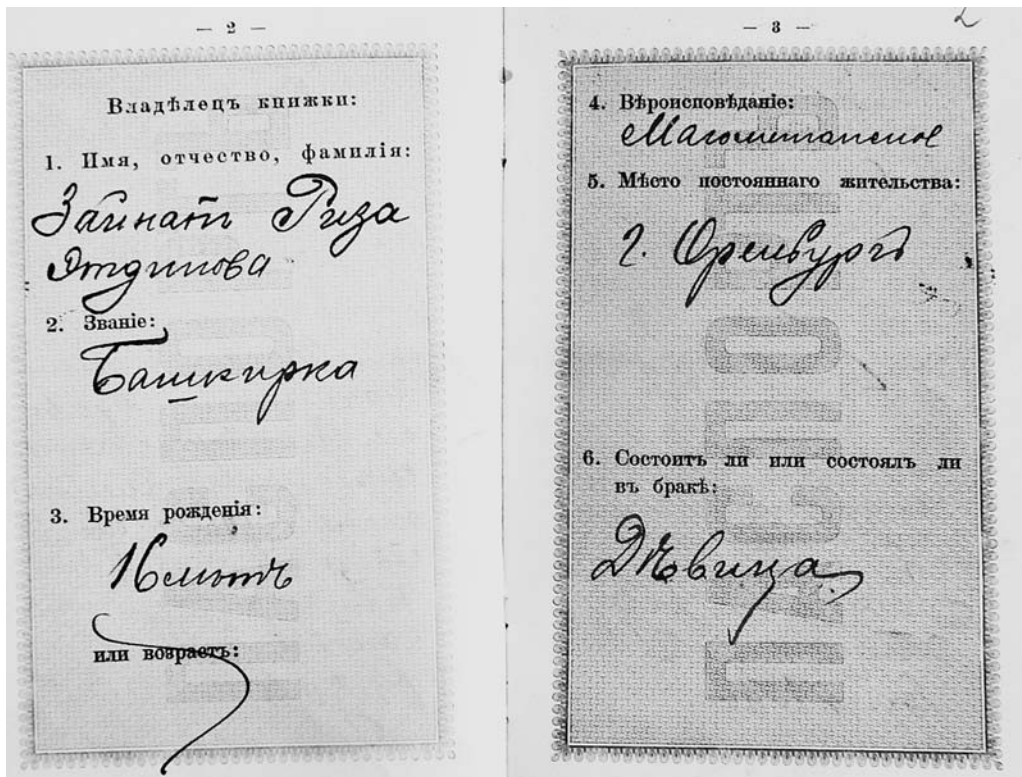 — 2 —
Владѣлецъ книжки:
1. Имя, отчество, фамилія:
Зайнатъ Риза
Этдинова
2. Званіе:
Башкирка
3. Время рожденія:
16 лѣтъ
или возрастъ:
— 3 —
2
4. Вѣроисповѣданіе:
Магометанское
5. Мѣсто постояннаго жительства:
г. Оренбургъ
6. Состоитъ ли или состоялъ ли
въ бракѣ:
Дѣвица